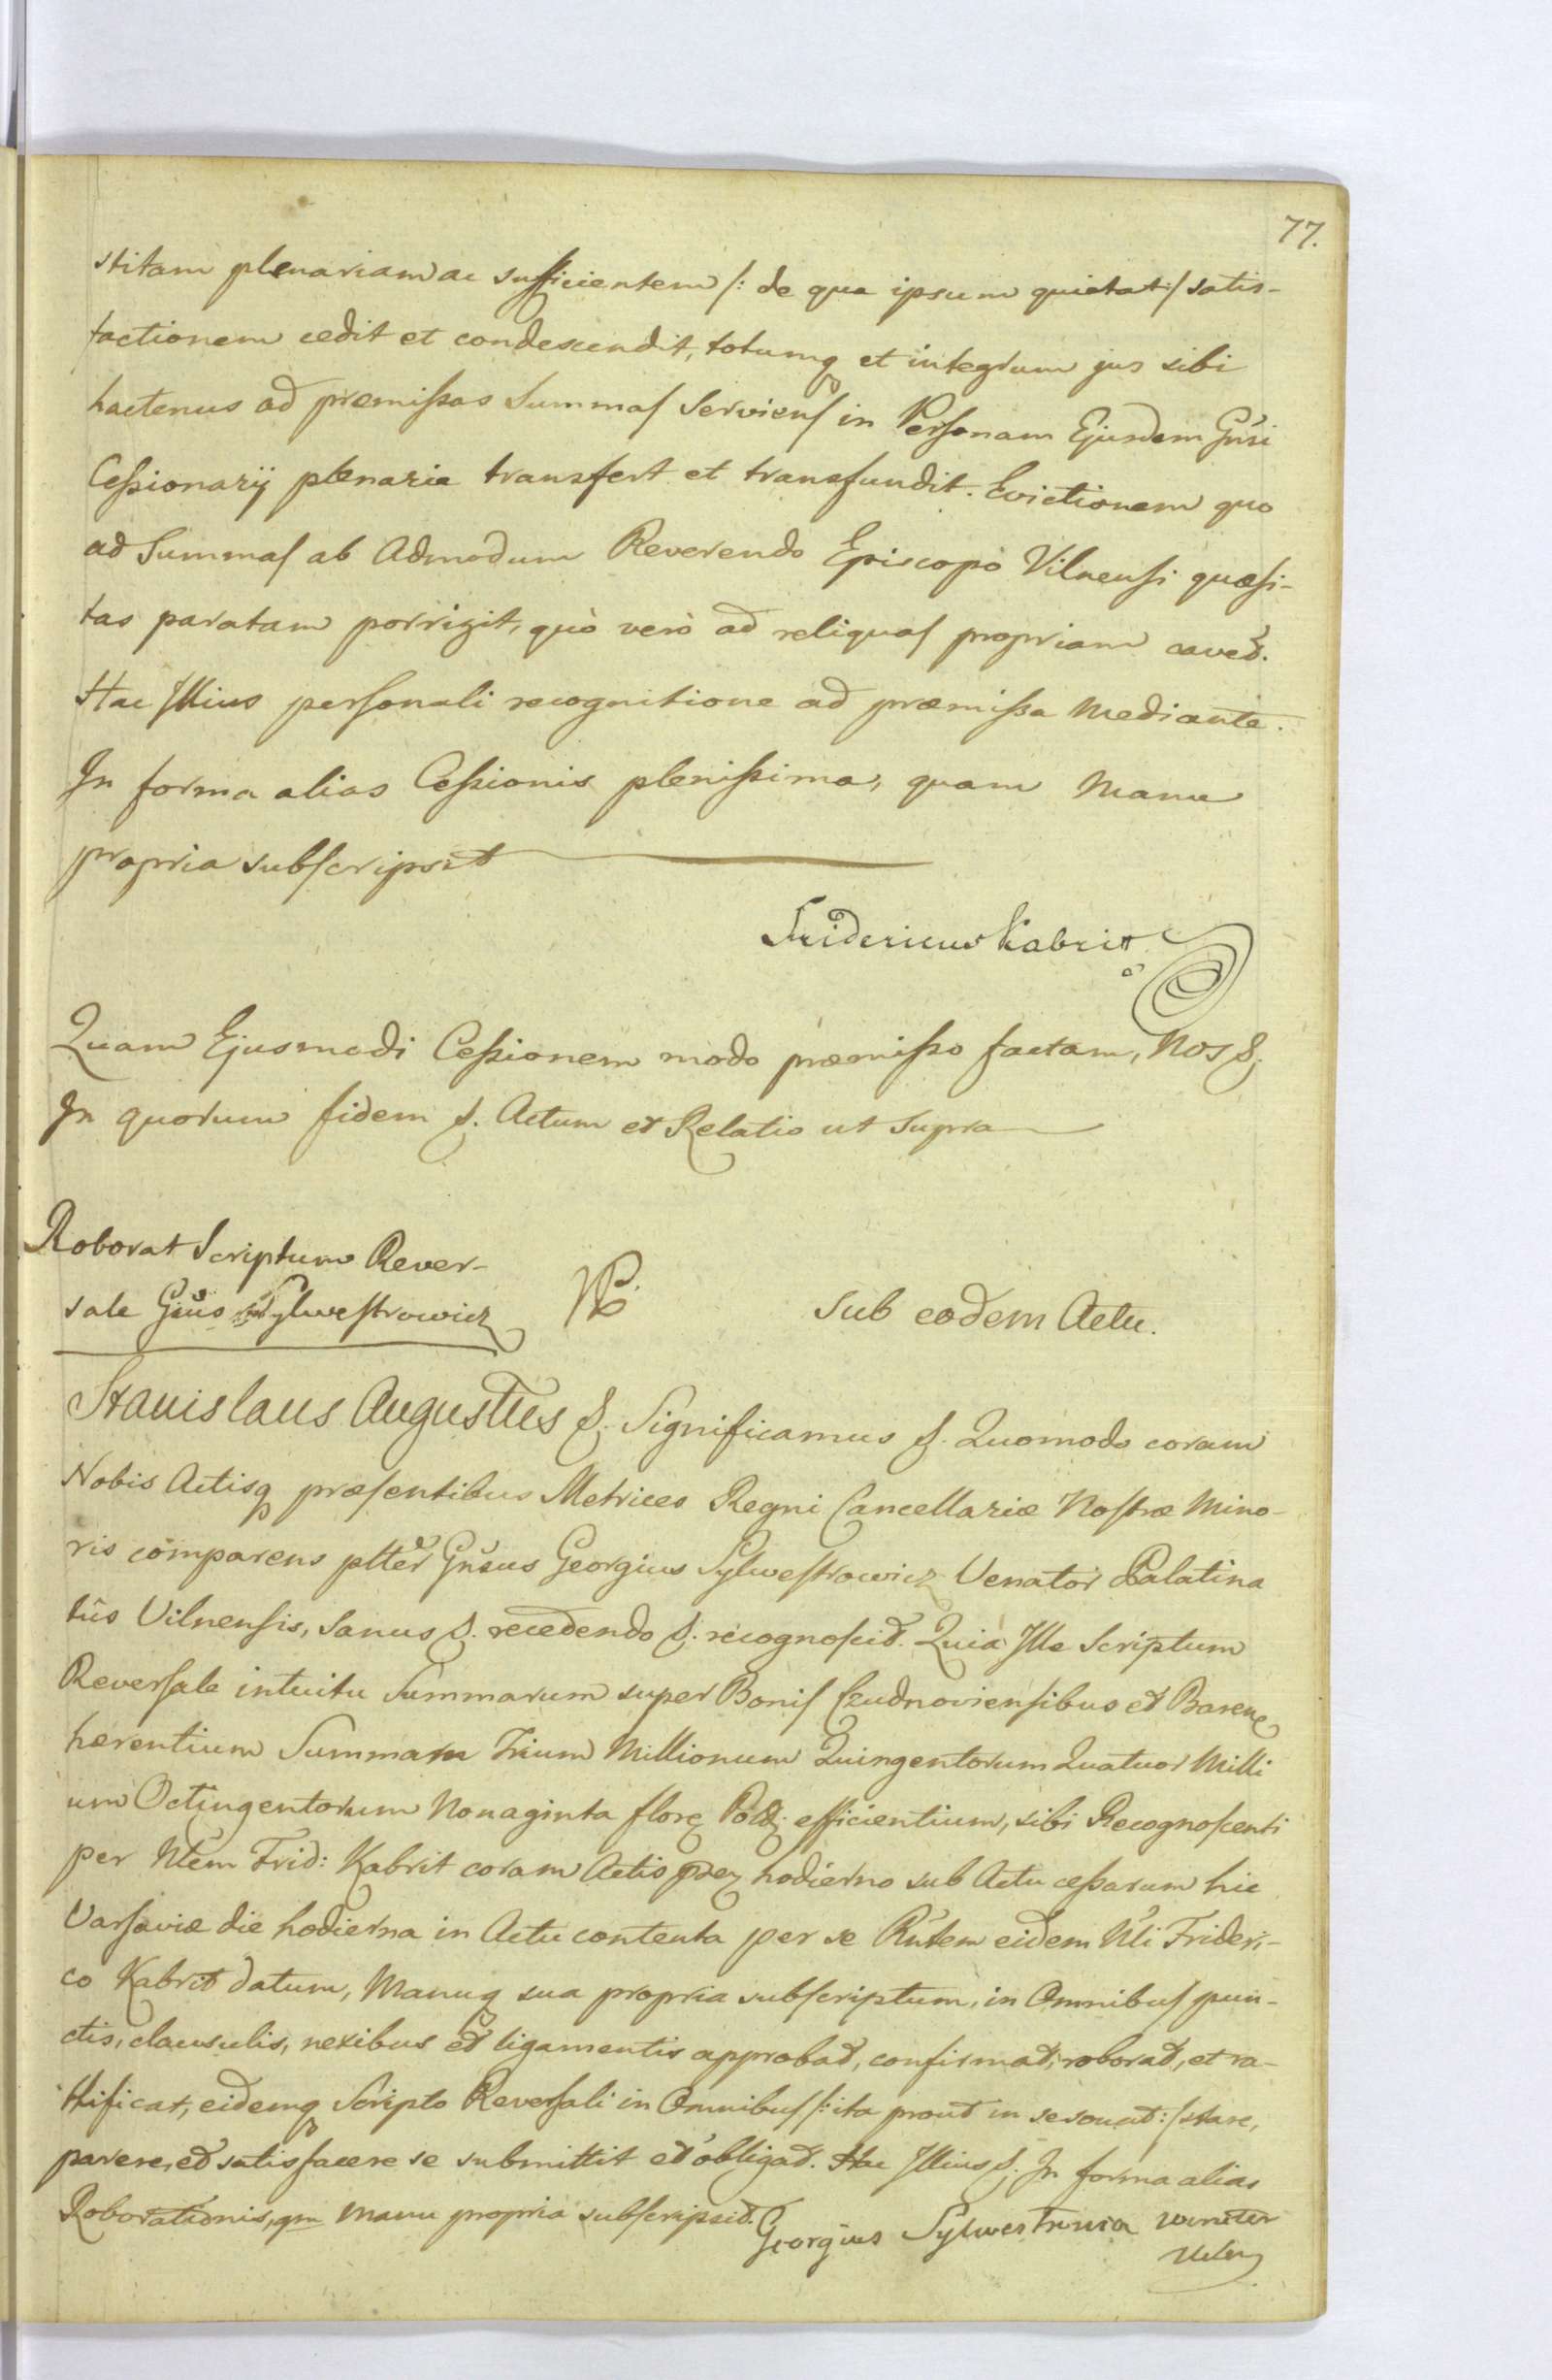 77.
stitam plenariam ac sufficientem /: de qua ipsum quietat :/ satis-
factionem cedit et condescendit, totumq et integrum jus sibi
hactenus ad præmissas Summas Serviens in Personam Ejusdem Gnsi
Cessionarij plenarie transfert et transfundit. Evictionem quo
ad Summas ab Admodum Reverendo Episcopo Vilnensi quæsi-
tas paratam porrigit, quò verò ad reliquas propriam cavet.
Hac Illius personali recognitione ad præmissa mediante.
In forma alias Cessionis plenissima, quam Manu
propria subscripsit
Fridericus Kabrit
Quam Ejusmodi Cessionem modo præmisso factam, Nos &.
In quorum fidem &. Actum et Relatio ut supra
Roborat Scriptum Rever-
sale Gnsus Sylwestrowicz
Sub eodem Actu.
Stanislaus Augustus &. Significamus &. Quomodo coram
Nobis Actisq præsentibus Metrices Regni Cancellariæ Nostræ Mino-
ris comparens pltter Gnsus Georgius Sylwestrowicz Venator Palatina
tûs Vilnensis, Sanus &. recedendo &. recognoscit. Quia Ille Scriptum
Reversale intuitu Summarum super Bonis Czudnoviensibus et Baren
hærentium Summam Trium Millionum Quingentorum Quatuor Milli
um Octingentorum Nonaginta flor Pol efficientium, sibi Recognoscenti
per Nlem Frid: Kabrit coram Actis pntz hodierno sub Actu cessarum hic
Varsaviæ die hodierna in Actu contenta per se Rntem eidem Nli Frideri-
co Kabrit datum, Manuq sua propria subscriptum, in Omnibus pun-
ctis, clausulis, nexibus et ligamentis approbat, confirmat, roborat, et ra-
tificat, eidemq Scripto Reversali in Omnibus /: ita prout in se sonat :/ stare,
parere, et satisfacere se submittit et obligat. Hac Illius &. In forma alias
Roborationis, qm manu propria subscripsit.
Georgius